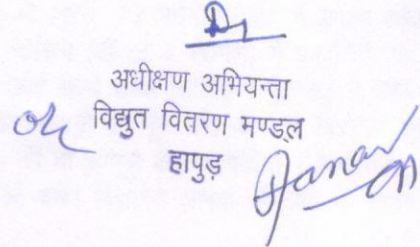 अधीक्षण अभियन्ता
विद्युत वितरण मण्ड्ल
हापुड़